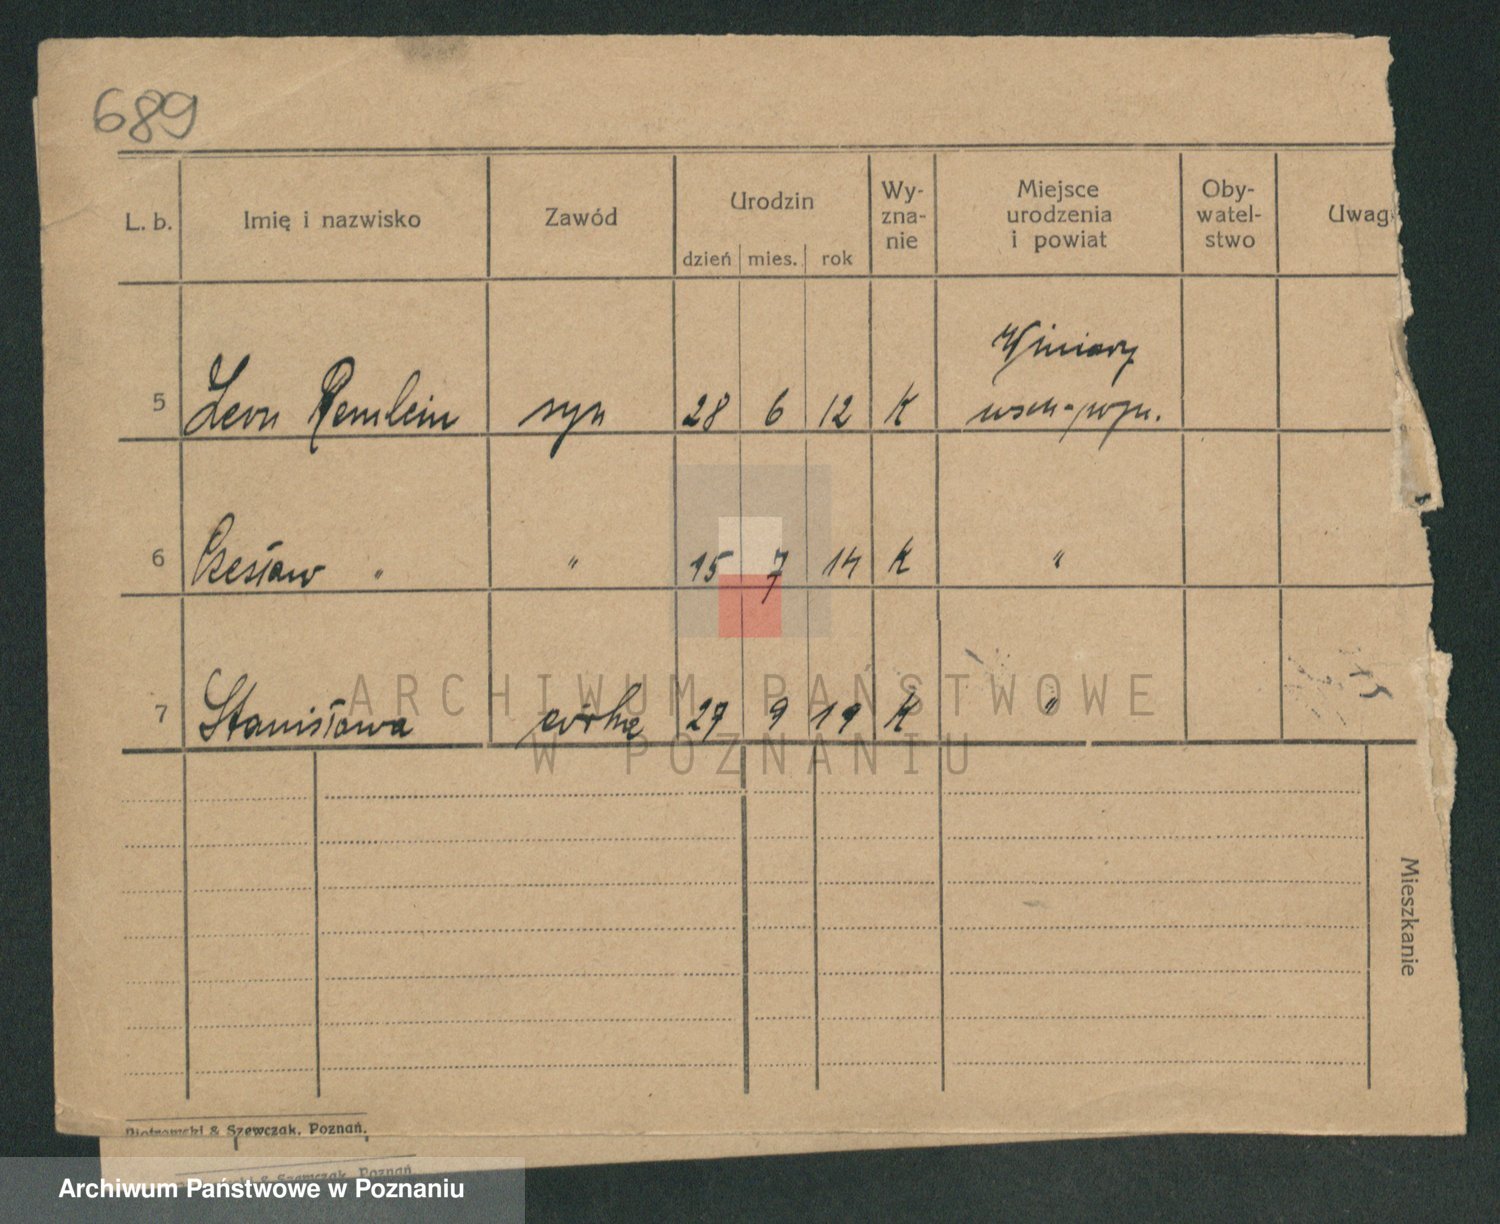 689
L. b. Imię i nazwisko Zawód Urodzin Wy-
zna-
nie Miejsce
urodzenia
i powiat Oby-
watel-
stwo Uwag
dzień mies. rok
Winiary
5 Leon Remlein syn 28 6 12 K wsch-pozn.
6 Czesław " " 15 7 14 K "
7 Stanisława córka 29 9 19 K "
ARCHIWUM PAŃSTWOWE
W POZNANIU
Mieszkanie
Piotrowski & Szewczak, Poznań.
& Szewczak, Poznań.
Archiwum Państwowe w Poznaniu